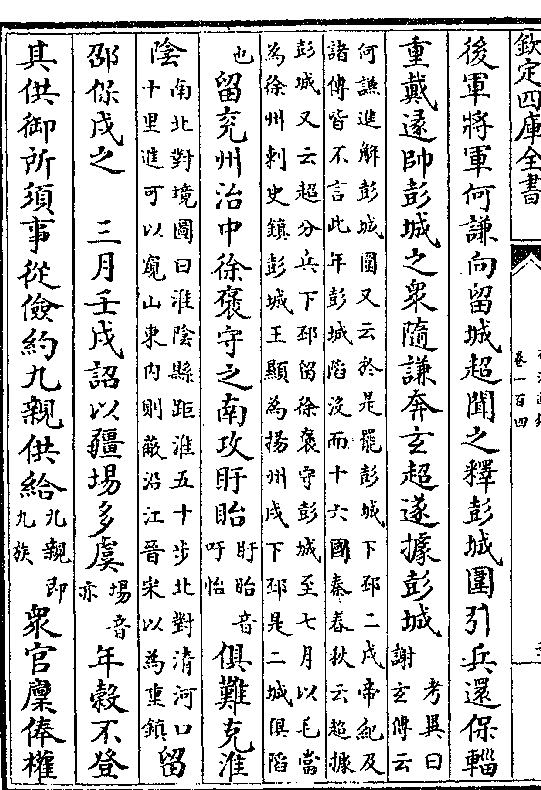 欽定四庫全書
卷一百四
後軍將軍何謙向留城超聞之釋彭城圍引兵還保輜
重戴逯帥彭城之衆隨謙奔玄超遂據彭城
考異曰
謝玄傳云
何謙進解彭城圍又云於是罷彭城下邳二戍帝紀及
諸傳皆不言此年彭城陷沒而十六國秦春秋云超據
彭城又云超分兵下邳留徐褒守彭城至七月以毛當
為徐州刺史鎮彭城王顯為揚州戍下邳是二城俱陷
也
留兗州治中徐褒守之南攻盱眙
盱眙音
吁怡
俱難克淮
陰
南北對境圖曰淮陰縣距淮五十步北對清河口
十里進可以窺山東内則蔽沿江晉宋以為重鎮
留
邵保戍之 三月壬戌詔以疆場多虞
場音
亦
年穀不登
其供御所須事從儉約九親供給
九親即
九族
衆官廩俸權